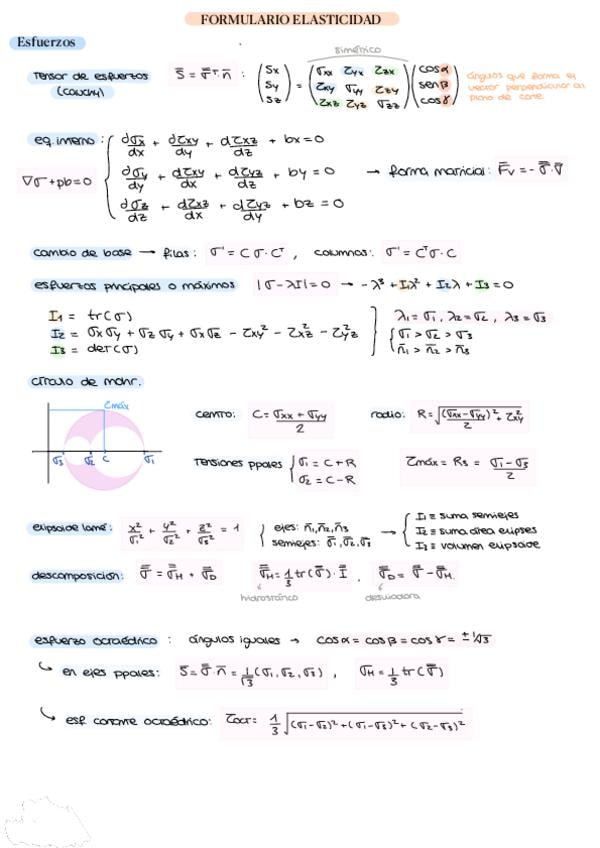 FORMULARIO ELASTICIDAD
Esfuerzos
simétrico
Tensor de esfuerzos (Cauchy) S̄ = σ̿ᵀ·n̄ : (Sx Sy Sz) = (σxx τyx τzx / τxy σyy τzy / τxz τyz σzz) (cosα senβ cosγ) ángulos que forma el vector perpendicular al plano de corte.
eq. interno: dσx/dx + dτxy/dy + dτxz/dz + bx = 0
∇σ + ρb = 0 dσy/dy + dτxy/dx + dτyz/dz + by = 0 → forma matricial: F̄v = - σ̿·∇̄
dσz/dz + dτxz/dx + dτyz/dy + bz = 0
cambio de base → filas: σ' = C σ·Cᵀ , columnas: σ' = Cᵀσ·C
esfuerzos principales o máximos |σ-λI| = 0 → -λ³ + I₁λ² + I₂λ + I₃ = 0
I₁ = tr(σ) λ₁ = σ₁, λ₂ = σ₂, λ₃ = σ₃
I₂ = σxσy + σzσy + σxσz - τxy² - τxz² - τyz² σ₁ > σ₂ > σ₃
I₃ = det(σ) n̄₁ > n̄₂ > n̄₃
círculo de mohr.
τmáx
σ₃ σ₂ C σ₁
centro: C = σxx + σyy / 2 radio: R = √((σxx - σyy)²/2 + τxy²)
Tensiones ppales σ₁ = C + R σ₂ = C - R τmáx = R₃ = σ₁ - σ₃ / 2
elipsoide lamé: x²/σ₁² + y²/σ₂² + z²/σ₃² = 1 ejes: n̄₁, n̄₂, n̄₃ semiejes: σ̄₁, σ̄₂, σ̄₃ → I₁ ≡ suma semiejes
I₂ ≡ suma área elipses
I₃ ≡ volumen elipsoide
descomposición: σ̿ = σ̿H + σ̿D σ̿H = 1/3 tr(σ̿)·I̿ , σ̿D = σ̿ - σ̿H.
hidrostático desviadora
esfuerzo octaédrico : ángulos iguales → cosα = cosβ = cosγ = ±1/√3
en ejes ppales: S̄ = σ̿·n̄ = 1/√3 (σ₁, σ₂, σ₃) , σH = 1/3 tr(σ̿)
esf. cortante octaédrico: τoct = 1/3 √((σ₁-σ₂)² + (σ₁-σ₃)² + (σ₂-σ₃)²)